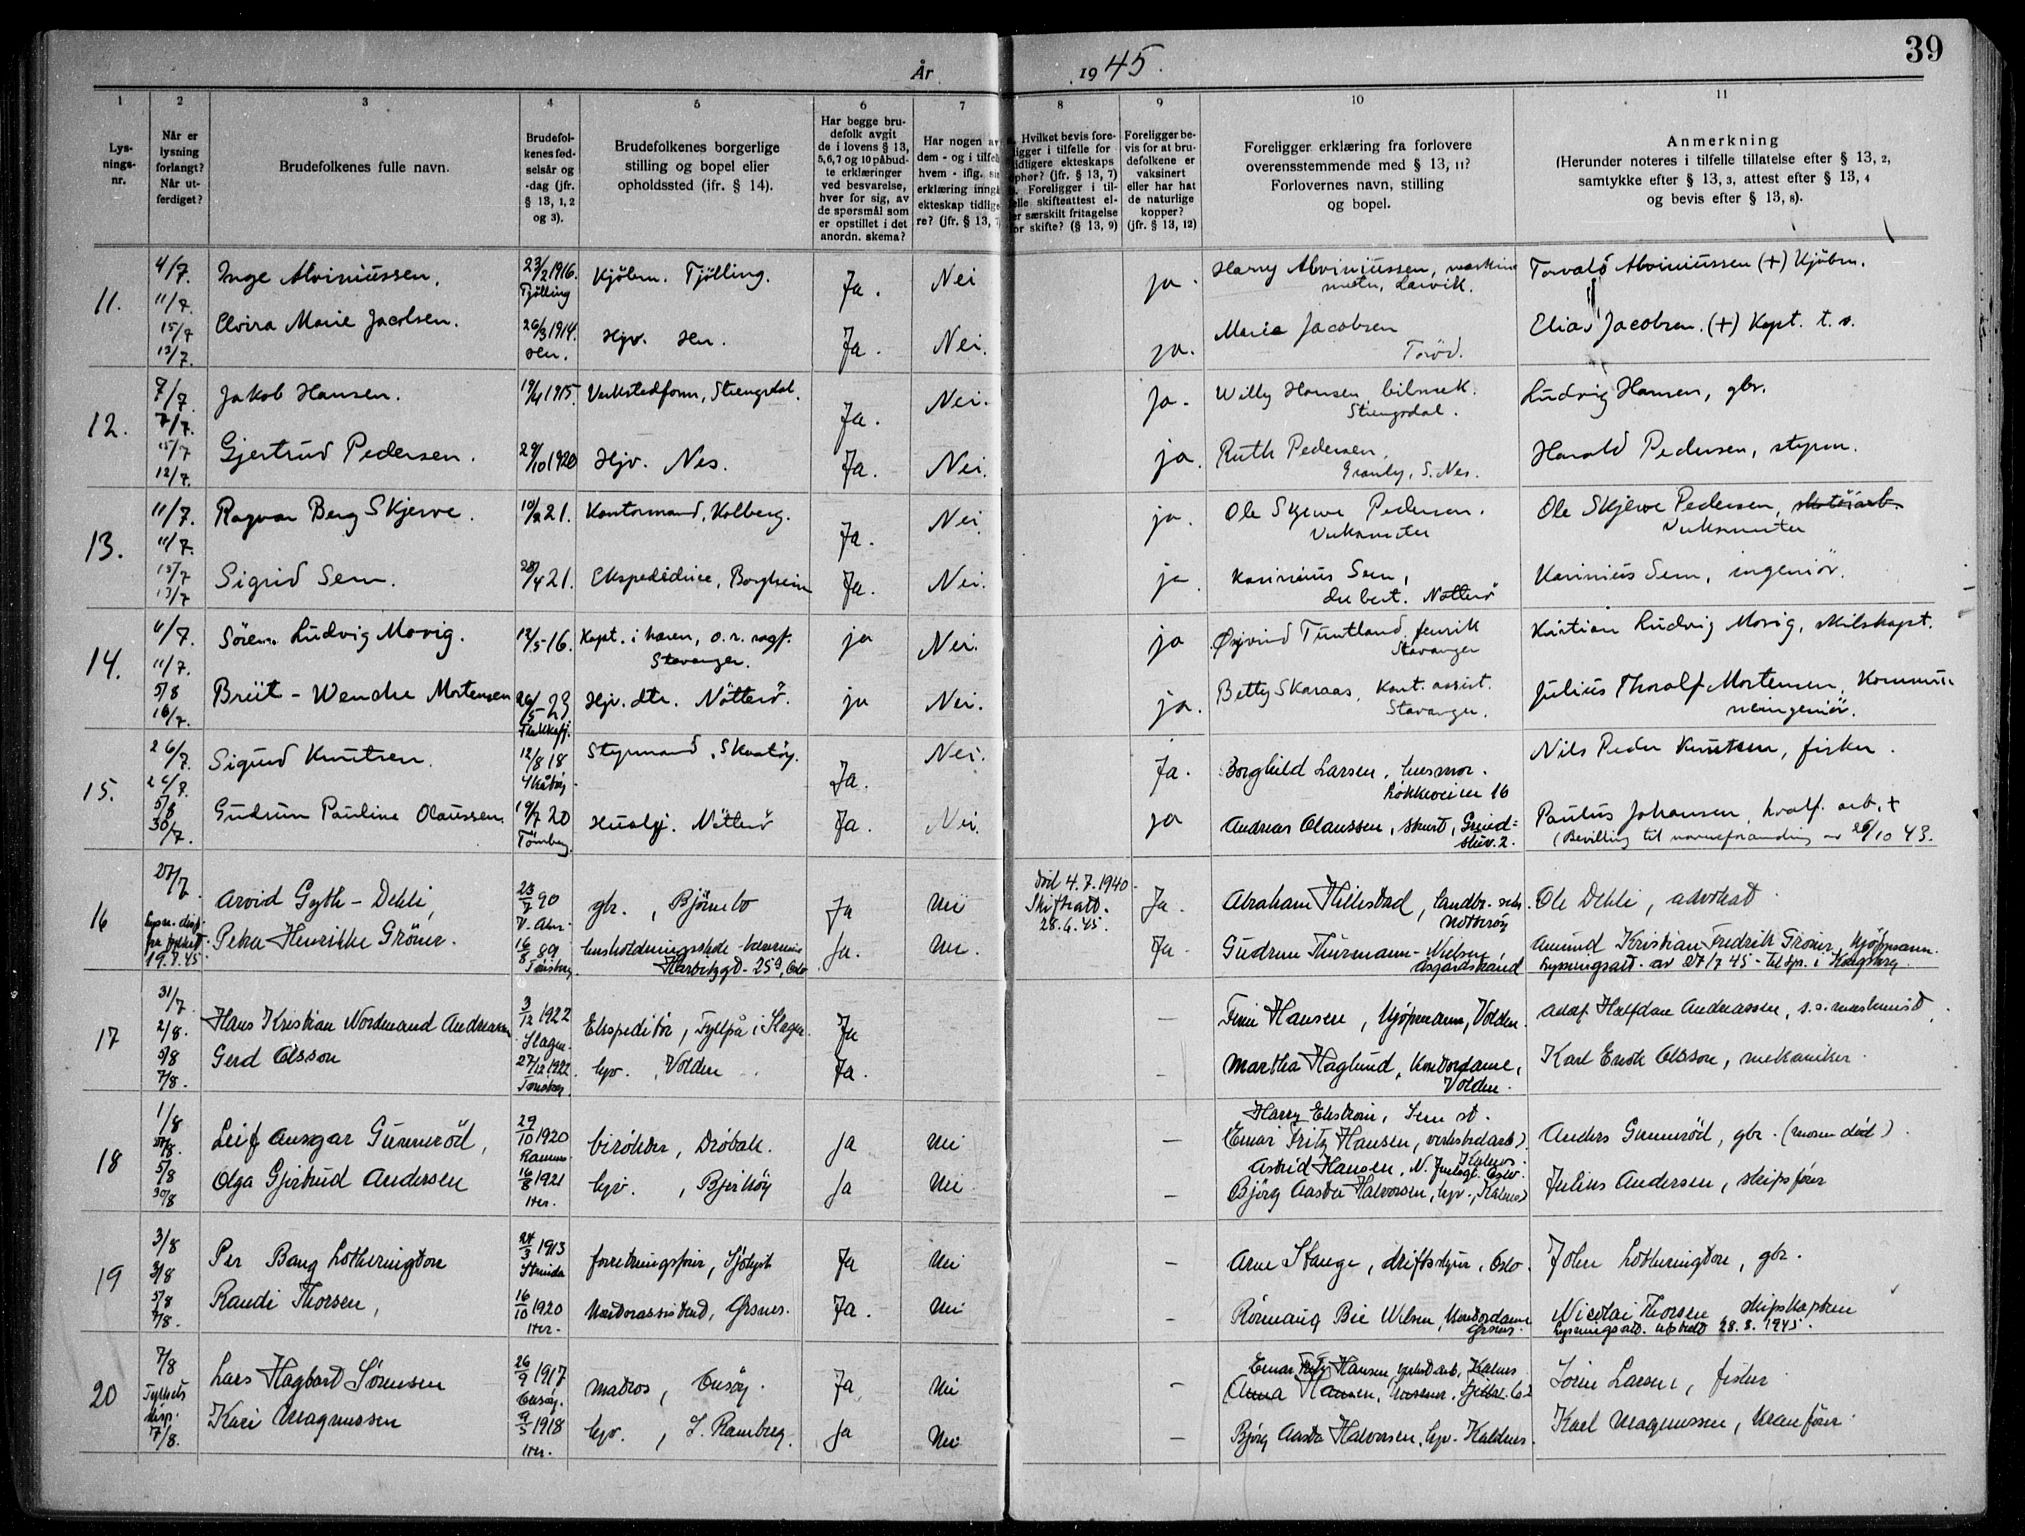 39
År 1945.
1
2
3
4
5
6
7
8
9
10
11
Lys-
nings-
nr.
Når er
lysning
forlangt?
Når ut-
ferdiget?
Brudefolkenes fulle navn.
Brudefol-
kenes fød-
selsår og
-dag (jfr.
§ 13, 1, 2
og 3).
Brudefolkenes borgerlige
stilling og bopel eller
opholdssted (ifr. § 14).
Har begge bru-
defolk avgit
de i lovens § 13,
5, 6, 7 og 10 påbud-
te erklæringer
ved besvarelse,
hver for sig, av
de spørsmål som
er opstillet i det
anordn. skema?
Har nogen av
dem - og i tilfelle
hvem - iflg. sin
erklæring inngått
ekteskap tidlige-
re? (jfr. § 13, 7)
Hvilket bevis fore-
ligger i tilfelle for
tidligere ekteskaps
ophør? (jfr. § 13, 7)
Foreligger i til-
felle skifteattest el-
ler særskilt fritagelse
for skifte? (§ 13, 9)
Foreligger be-
vis for at bru-
defolkene er
vaksinert
eller har hat
de naturlige
kopper?
(jfr. § 13, 12)
Foreligger erklæring fra forlovere
overensstemmende med § 13, 11?
Forlovernes navn, stilling
og bopel.
Anmerkning
(Herunder noteres i tilfelle tillatelse efter § 13, 2,
samtykke efter § 13, 3, attest efter § 13, 4
og bevis efter § 13, 8).
11.
4/7.
11/7.
15/7
13/7.
Inge Alviniussen.
23/2 1916.
Tjølling
Kjøbm. Tjølling.
Ja.
Nei
ja.
Harry Alviniussen, maskin
Larvik.
Torvald Alviniussen (+) Kjøbm.
Elvira Marie Jacobsen.
26/3 1914.
Hjv.
Ja.
Nei.
ja.
Maria Jacobsen
Torød.
Elias Jacobsen. (+) Kapt. t. s.
12.
7/7.
7/7.
15/7
12/7.
Jakob Hansen.
19/4 1915.
Verkstedform, Strengsdal.
Ja.
Nei.
Ja.
Willy Hansen, bilmek.
Strengsdal.
Ludvig Hansen, gbr.
Gjertrud Pedersen.
29/10 1920
Hjv. Nes.
Ja.
Nei.
ja.
Ruth Pedersen,
Granly, S. Nes.
Harald Pedersen, styrm.
13.
11/7.
11/7.
15/7
13/7
Ragnar Berg Skjerve.
Kontormand, Kolberg.
Ja.
Nei.
ja.
Ole Skjerve Pedersen.
Verksmester
Ole Skjerve Pedersen, skotøiarb.
Verksmester
Sigrid Sem.
28/4 21.
Ekspeditrice, Borgheim
Ja.
Nei.
ja
Karinius Sem,
Nøtterø
Karinius Sem, ingeniør.
14.
11/7.
11/7.
5/8
16/7.
Søren Ludvig Morig.
12/5-16.
Kapt. i hæren, o.r. sagf.
Stavanger.
ja
Nei.
ja
Øyvind Tuntland, fenrik
Stavanger
Kristian Ludvig Morig, Milskapt.
Britt-Wenche Mortensen
26/5-23
Hjv. dtr. Nøtterø.
ja
Nei.
ja.
Betty Skaraas, Kont. assist.
Stavanger.
Julius Thoralf Mortensen, Kommu-
neingeniør.
15.
26/7.
26/7.
5/8
30/7.
Sigurd Knutsen.
12/8 18
Styrmand, Skaatøy.
Ja.
Nei.
Ja.
Borghild Larsen, husmor.
Løkkeveien 16
Nils Peder Knutsen, fisker.
Gudrun Pauline Olaussen.
19/7 20
Tønsberg.
Hushj. Nøtterø
Ja.
Nei.
ja
Andreas Olaussen, skurt, Grind-
stuv. 2.
Paulus Johansen, hvalf. arb. +
(Bevilling til navneforandring av 26/10 43.
16
27/7.
19.7.45.
Arvid Gyth-Dehli,
23/7 90
V. Aker.
gbr., Bjørnebo
Ja
Nei
død 4.7.1940.
Skifteatt.
28.6.45.
Ja.
Abraham Hillestad,
Nøtterøy
Ole Dehli, advokat
Petra Henrikke Grøner.
16/8 89
Tønsberg
husholdningsskole-bestyrerinne
Harbitzgt. 25 d, Oslo
Ja.
Nei.
Ja.
Gudrun Thurmann-Nielsen
Åsgårdstrand
Amund Kristian Fredrik Grøner, kjøpmann.
Lysningsatt. av 27/7 45 - til spr. i Kongsberg.
17
31/7.
2/8.
5/8
7/8.
Hans Kristian Nordmand Andreassen
3/12 1922
Slagen
Ekspeditør, Fyllpå i Slagen.
Ja
-
Finn Hansen, kjøpmann, Volden.
Adolf Halfdan Andreassen, s.s. maskinist,
Gerd Olsson
27/12 1922
Tønsberg
hjv., Volden
Ja.
-
Martha Haglund, kontordame,
Volden.
Karl Erik Olsson, mekaniker.
18
1/8
5/8
30/8
Leif Ansgar Gunnerød,
29/10 1920
Ramnes
birøkter, Drøbak.
Ja
Nei
-
Harry Ekstrøm, Sem st.
(Einar Fritz Hansen, verkstedarb.)
Kalnes.
Anders Gunnerød, gbr. (moren død).
Olga Gjertrud Andersen
16/8 1921
Her.
hjv., Bjerkøy
Ja
Nei
-
Astrid Hansen, N. Oslo.
Bjørg Aasta Halvorsen, hjv., Kalnes)
Julius Andersen, skipsfører
19
3/8
3/8
5/8
7/8.
Per Bang Lotherington
24/3 1913
Strinda
forretningsfører, Sjølyst
Ja
Nei
-
Arne Stange, driftsstyrer, Oslo.
John Lotherington, gbr.
Randi Thorsen,
16/10 1920
Her.
kontorassistent, Ørsnes.
Ja.
Nei
-
Rønnaug Bie Nilsen, kontordame
Ørsnes.
Nicolai Thorsen, skipskaptein
Lysningsatt. utstedt 28.8.1945.
20
7/8
Fylkets
disp.
7/8.
Lars Hagbart Sørensen
26/9 1917
matros,
Ja
Nei
-
Einar Fritz Hansen verkst. arb, Kalnes
Anna Hansen, husmor,
Sørin Larsen, fisker
Kari Magnussen
9/3 1918
Her.
hjv., S. Ramberg.
Ja
Nei
-
Bjørg Aasta Halvorsen, hjv. Kaldnes.
Karl Magnussen, kranfører.